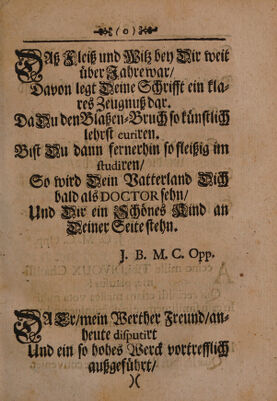 ( 0 )
Daß Fleiß und Witz bey Dir weit
über Jahre war/
Davon legt Deine Schrifft ein kla-
res Zeugnuß dar.
Da Du den Blaßen-Bruch so künstlich
lehrst curiren.
Bist Du dann fernerhin so fleißig im
studiren/
So wird Dein Vatterland Dich
bald als DOCTOR sehn/
Und Dir ein Schönes Kind an
Deiner Seite stehn.
J. B. M. C. Opp.
DA Er/mein Werther Freund/an-
heute disputirt
Und ein so hohes Werck vortrefflich
außgeführt/
)(